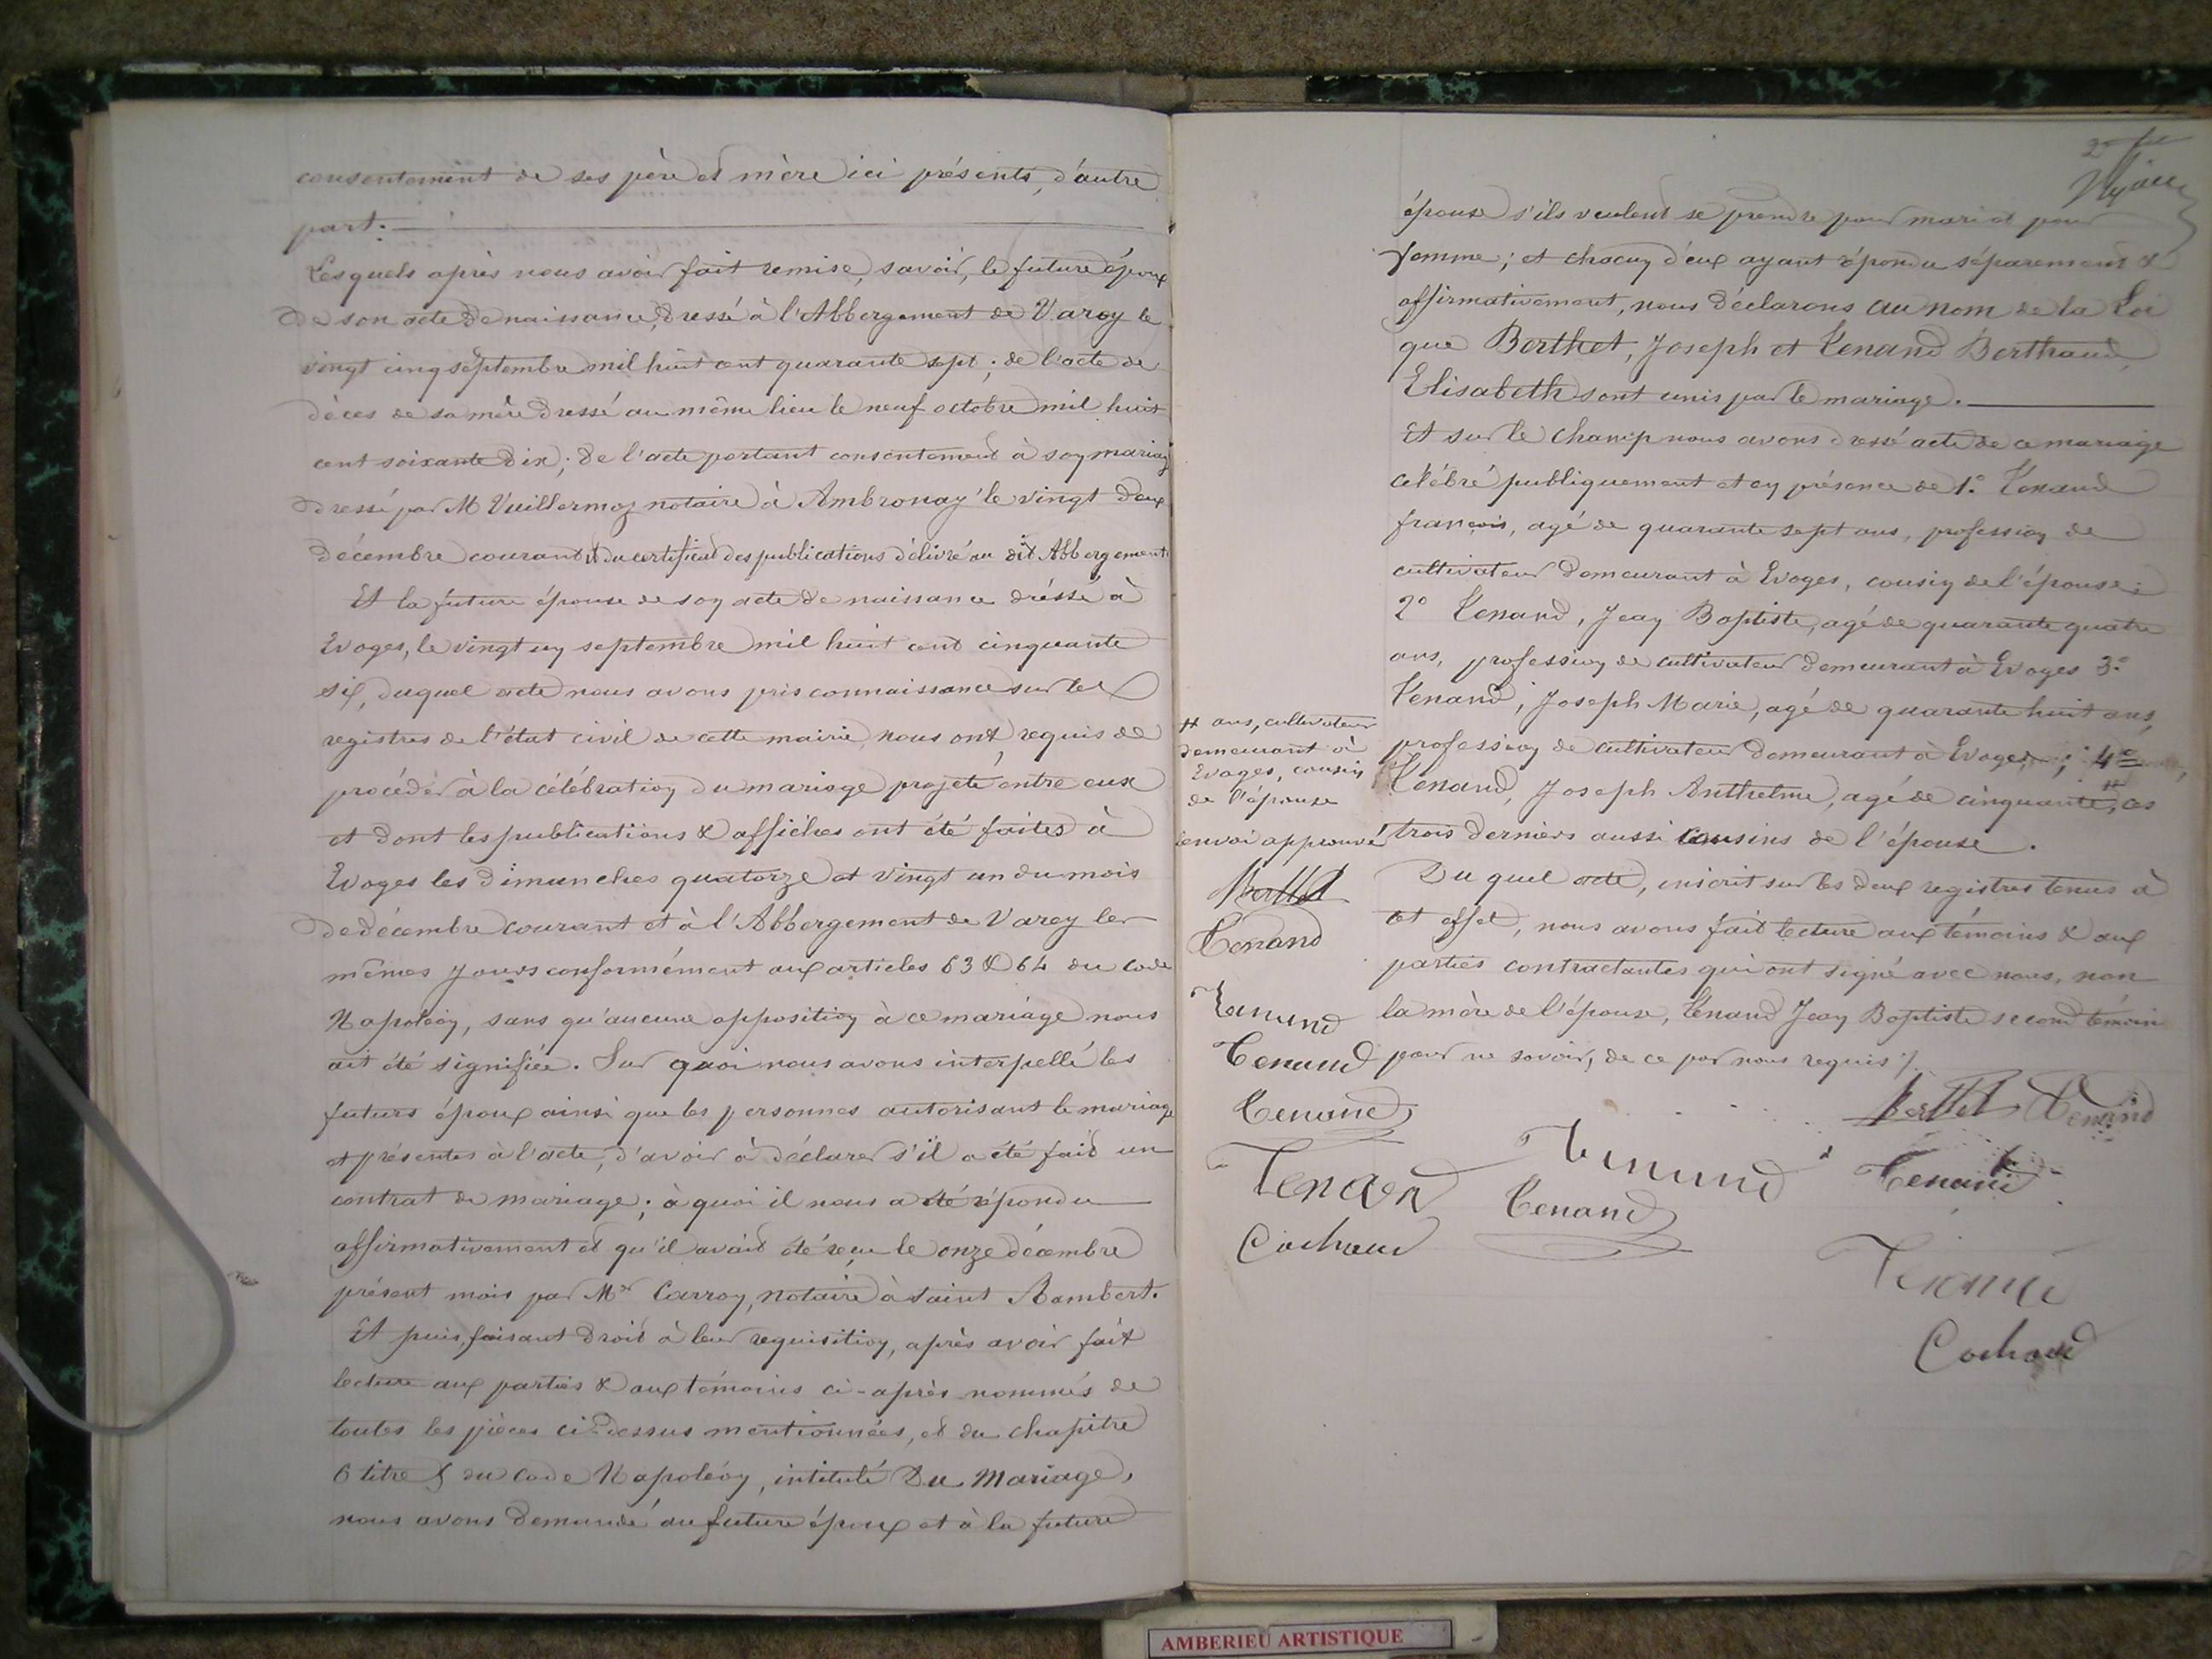 consentement de ses père et mère ici présents, d'autre
part.
Lesquels après nous avoir fait remise, savoir, le future époux
de son acte de naissance, dressé à l'Abbergement de Varey le
vingt cinq septembre mil huit cent quarante sept; de l'acte de
décès de sa mère dressé au même lieu le neuf octobre mil huit
cent soixante dix; de l'acte portant consentement à son mariage
dressé par M Vuillermoz notaire à Ambronay le vingt deux
décembre courant & du certificat des publications délivré au dit Abbergement
Et la future épouse de son acte de naissance dréssé à
Evoges, le vingt un septembre mil huit cent cinquante
six, duquel acte nous avons pris connaissance sur les
registres de l'état civil de cette mairie, nous ont requis de
procéder à la célébration du mariage projeté entre eux
et dont les publications & affiches ont été faites à
Evoges les dimanches quatorze et vingt un du mois
de décembre courant et à l'Abbergement de Varey les
mêmes jours conformément aux articles 63 & 64 du Code
Napoléon, sans qu'aucune opposition à ce mariage nous
ait été signifiée. Sur quoi nous avons interpellé les
futurs époux ainsi que les personnes autorisant le mariage
et présentes à l'acte, d'avoir à déclarer s'il a été fait un
contrat de mariage; à quoi il nous a été répondu
affirmativement et qu'il avait été reçu le onze décembre
présent mois par Me Carroy, notaire à Saint Rambert.
Et puis, faisant droit à leur requisition, après avoir fait
lecture aux parties & aux témoins ci-après nommés de
toutes les pièces ci-dessus mentionnées, et du chapitre
6 titre 5 du Code Napoléon, intitulé Du Mariage,
nous avons demandé au future époux et à la future
épouse s'ils veulent se prendre pour mari et pour
femme; et chacun d'eux ayant répondu séparement &
affirmativement, nous déclarons au nom de la Loi
que Berthet, Joseph et Tenand Berthaud
Elisabeth sont unis par le mariage.
Et sur le champ nous avons dressé acte de ce mariage
célébré publiquement et en présence de 1° Tenand
françois, agé de quarante sept ans, profession de
cultivateur demeurant à Evoges, cousin de l'épouse;
2° Tenand, Jean Baptiste, agé de quarante quatre
ans, profession de cultivateur demeurant à Evoges 3°
Tenand, Joseph Marie, agé de quarante huit ans,
profession de cultivateur demeurant à Evoges; 4°
Tenand, Joseph Anthelme, agé de cinquante, # ces
trois derniers aussi cousins de l'épouse.
Du quel acte, inscrit sur les deux registres tenus à
cet effet, nous avons fait lecture aux témoins & aux
parties contractantes qui ont signé avec nous, non
la mère de l'épouse, Tenand Jean Baptiste second témoin
pour ne savoir, de ce par nous requis /.
# ans, cultivateur
demeurant à
Evoges, cousin
de l'épouse
renvoi approuvé
Berthet
Tenand
Tenand
Tenand
Tenand
Tenand
Cochaud
Berthet Tenand
Tenand Tenand
Tenand
Tenand
Cochaud
AMBERIEU ARTISTIQUE